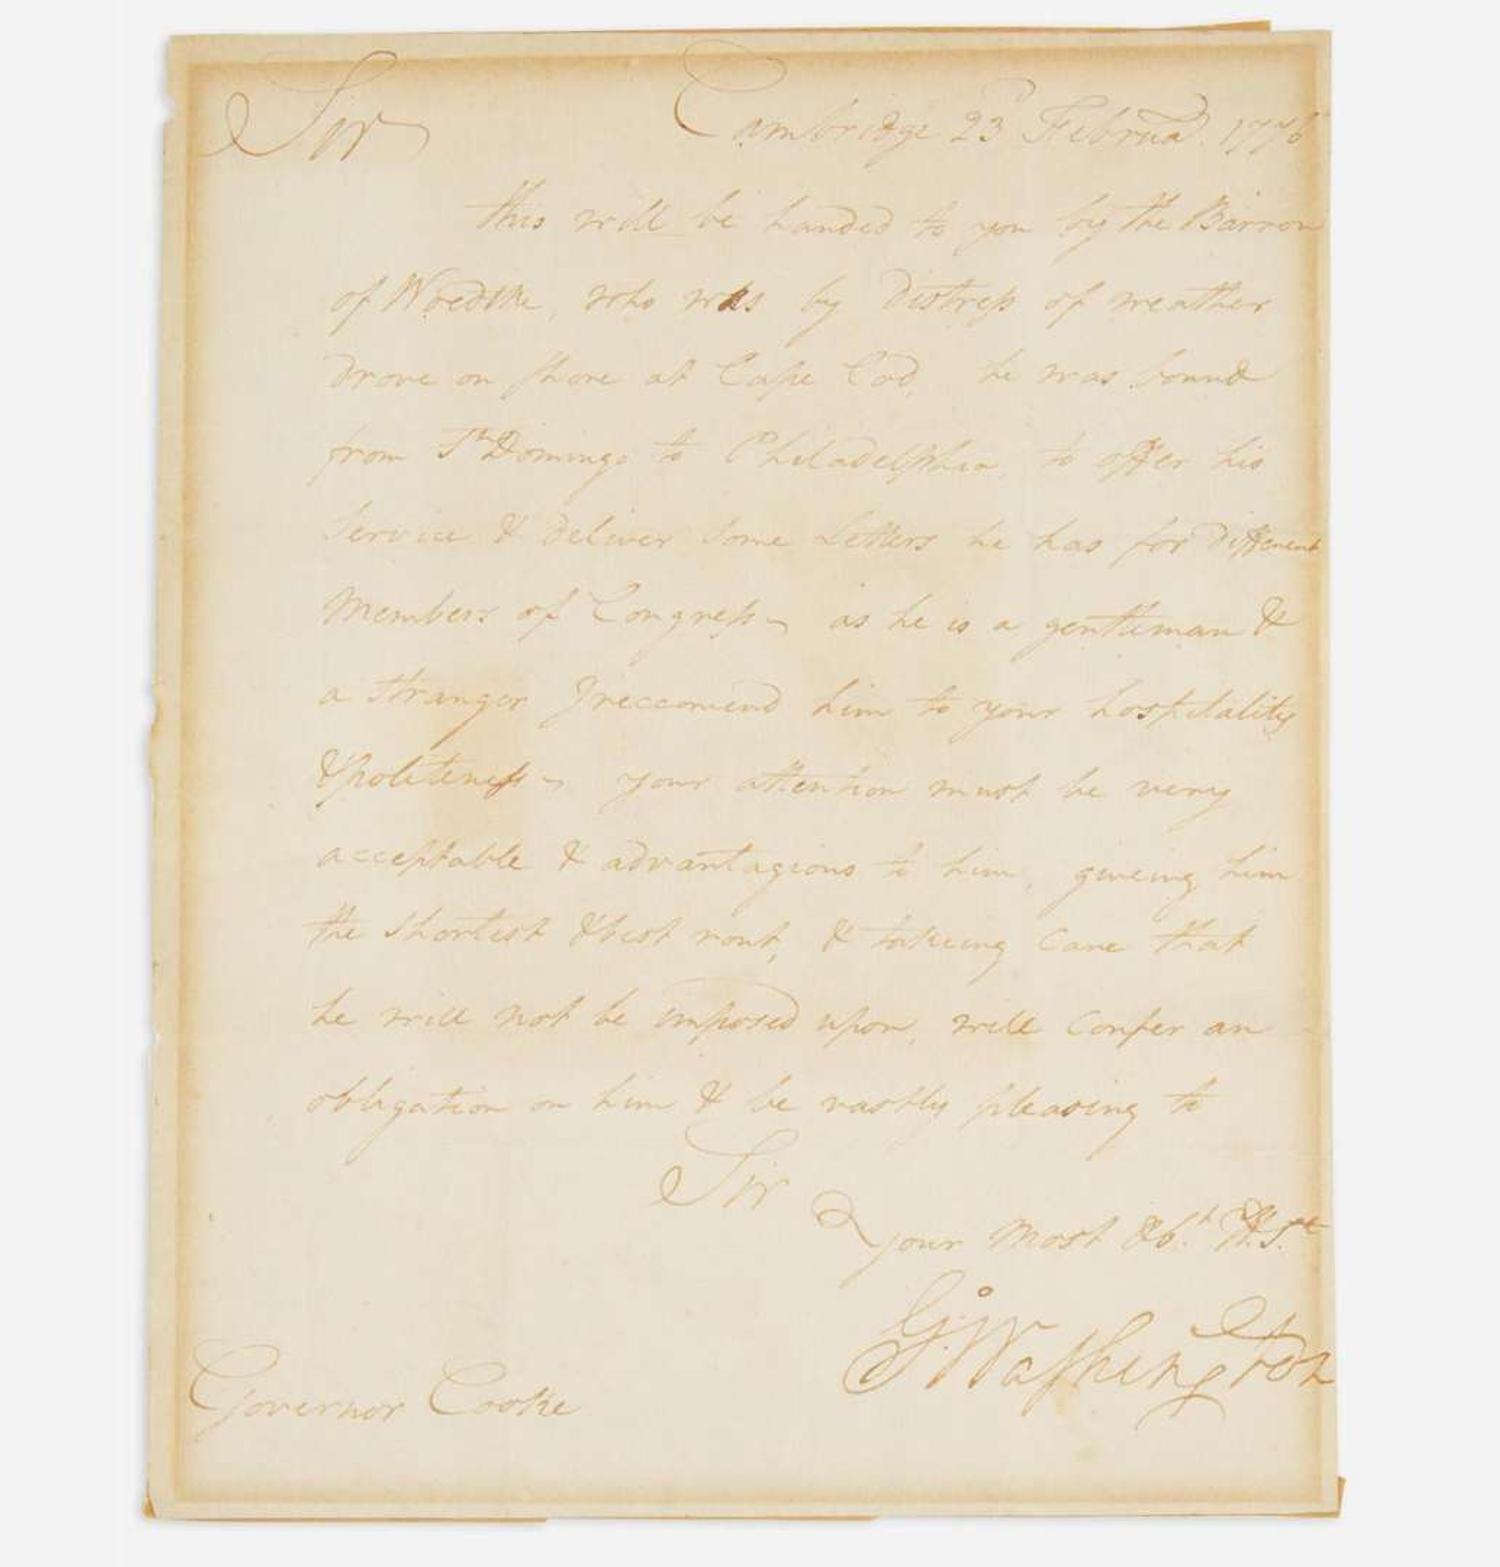 Sir Cambridge 23d Februa. 1776
this will be handed to you by the Barron
of Woedtke, who was by distress of weather
drove on shore at Cape Cod, he was bound
from St Domingo to Philadelphia, to offer his
Service & deliver some Letters he has for different
Members of Congress— as he is a gentleman &
a stranger I reccomend him to your hospitality
& politeness— your attention must be very
acceptable & advantagious to him, giveing him
the shortest & best rout, & takeing care that
he will not be imposed upon, will confer an
obligation on him & be vastly pleasing to
Sir
your most Obt. H. St
Go: Washington
Governor Cooke